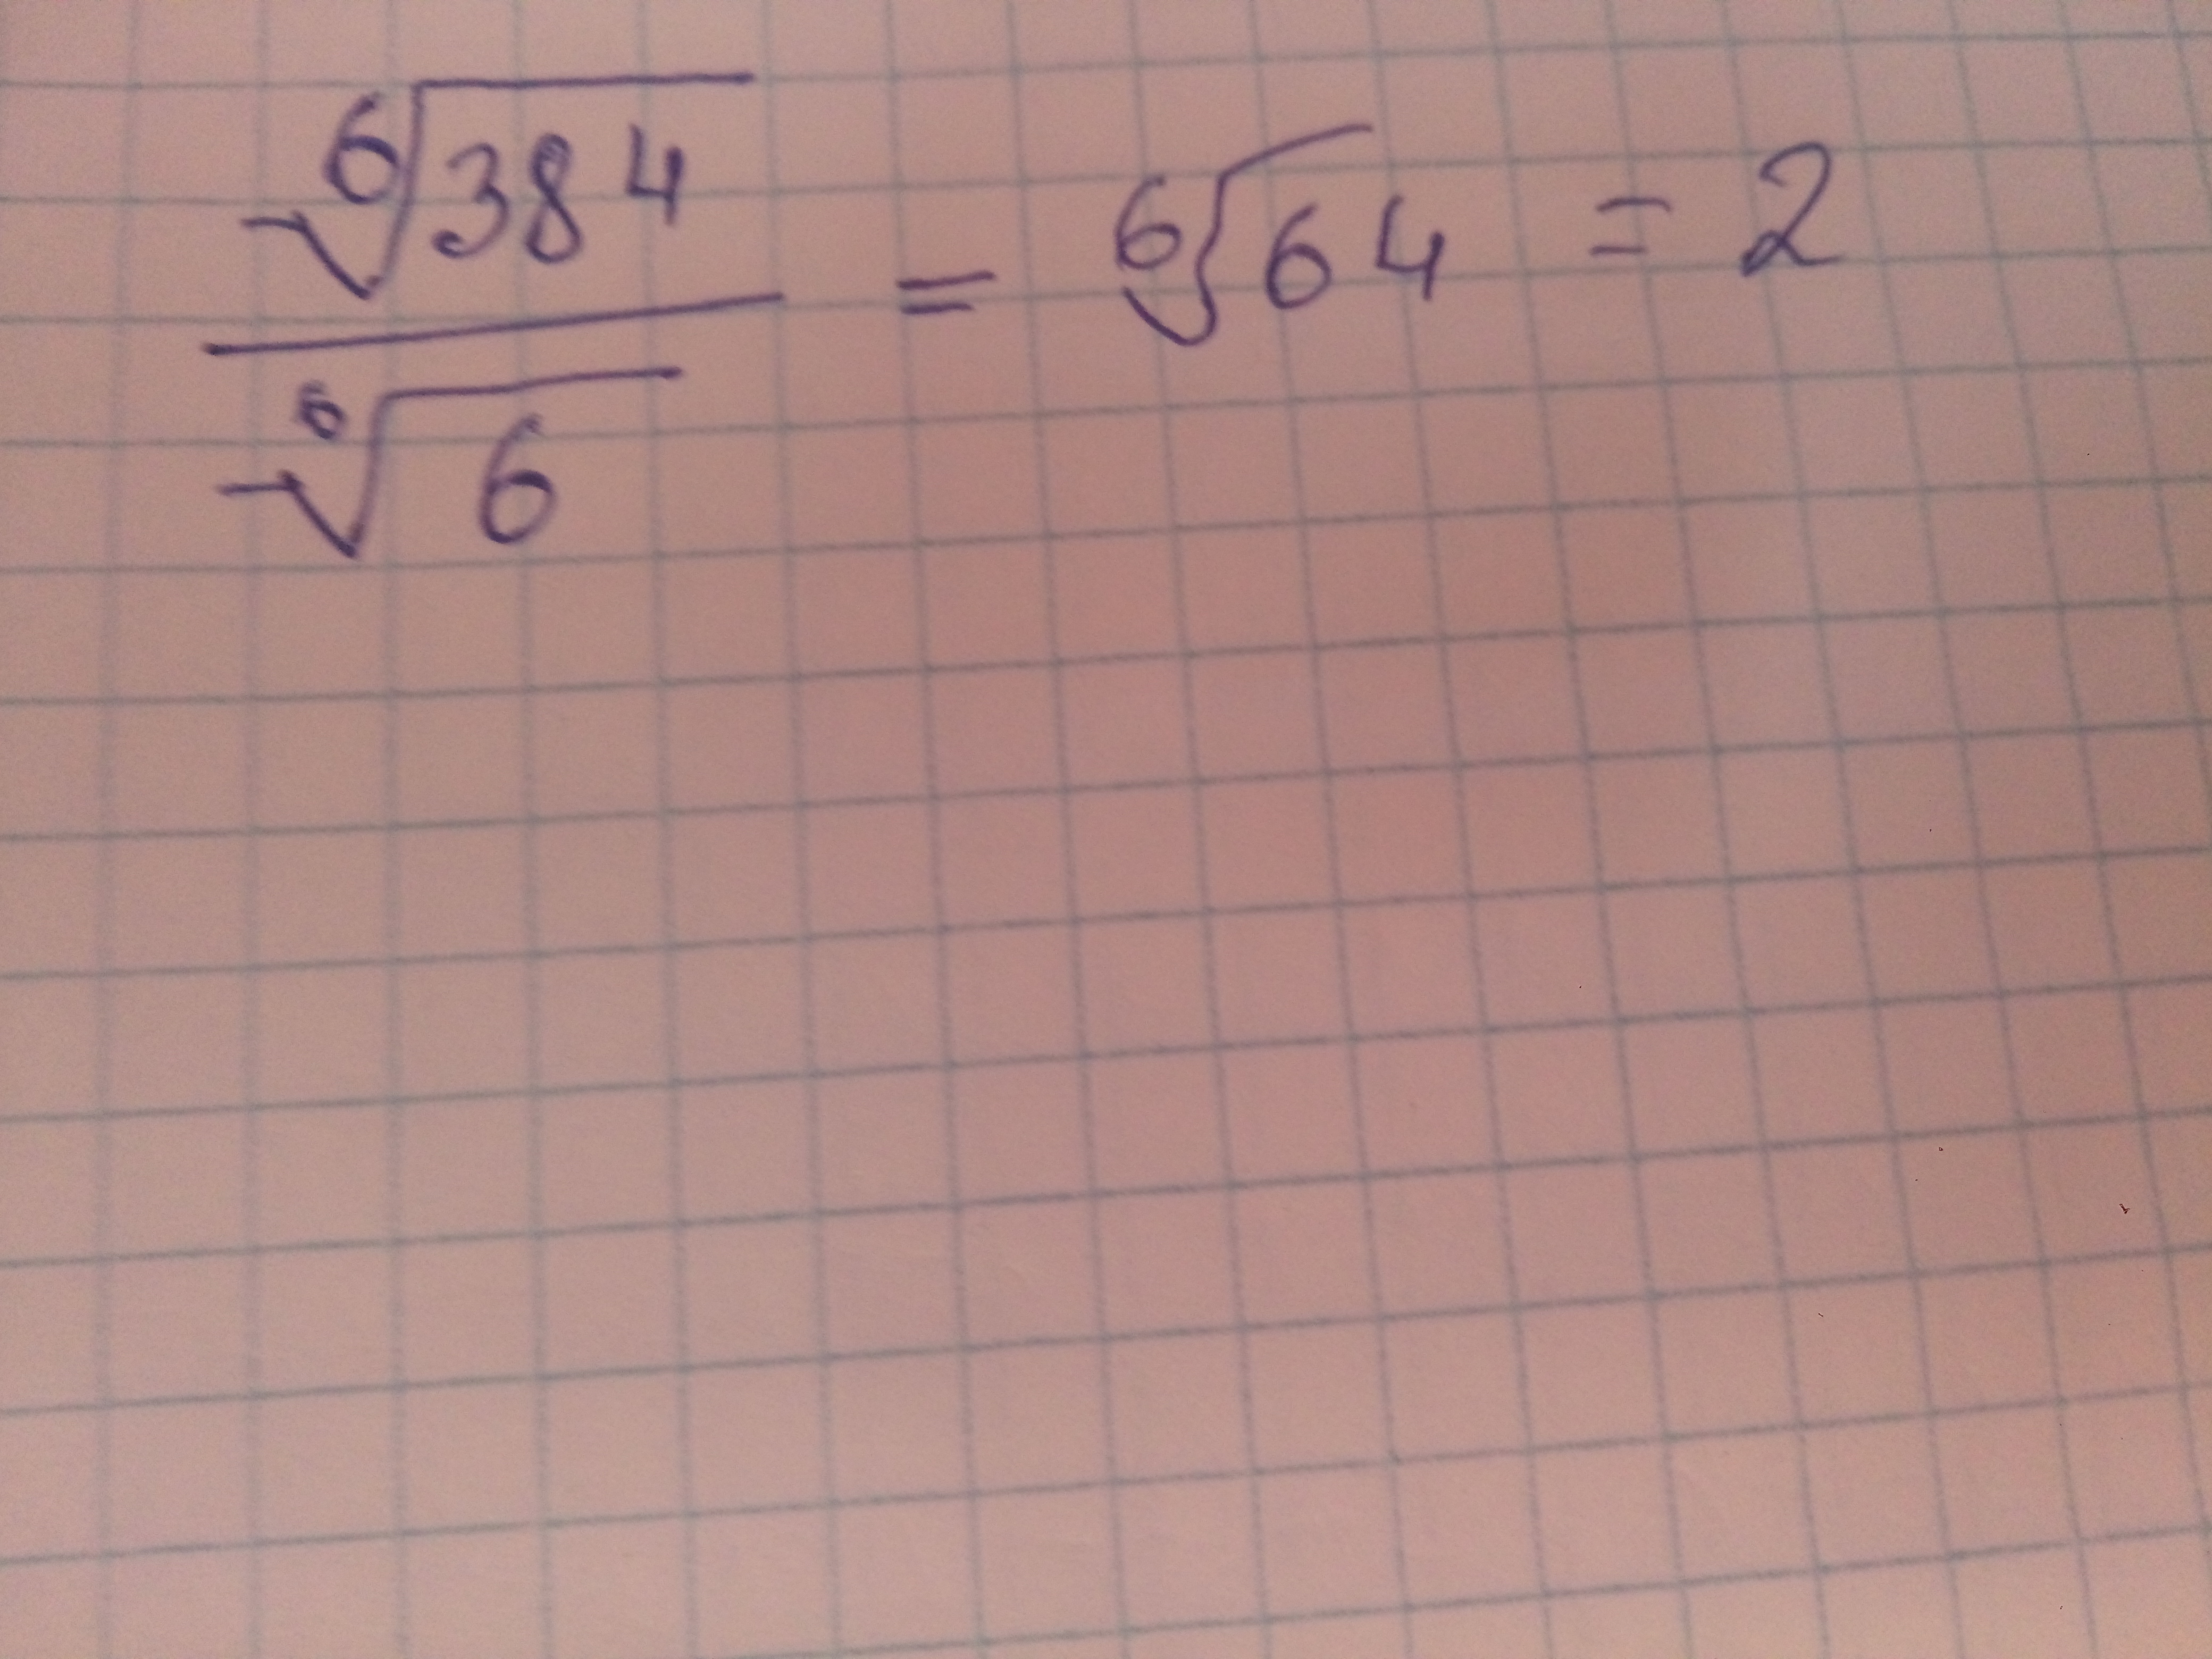 ⁶√384 / ⁶√6 = ⁶√64 = 2